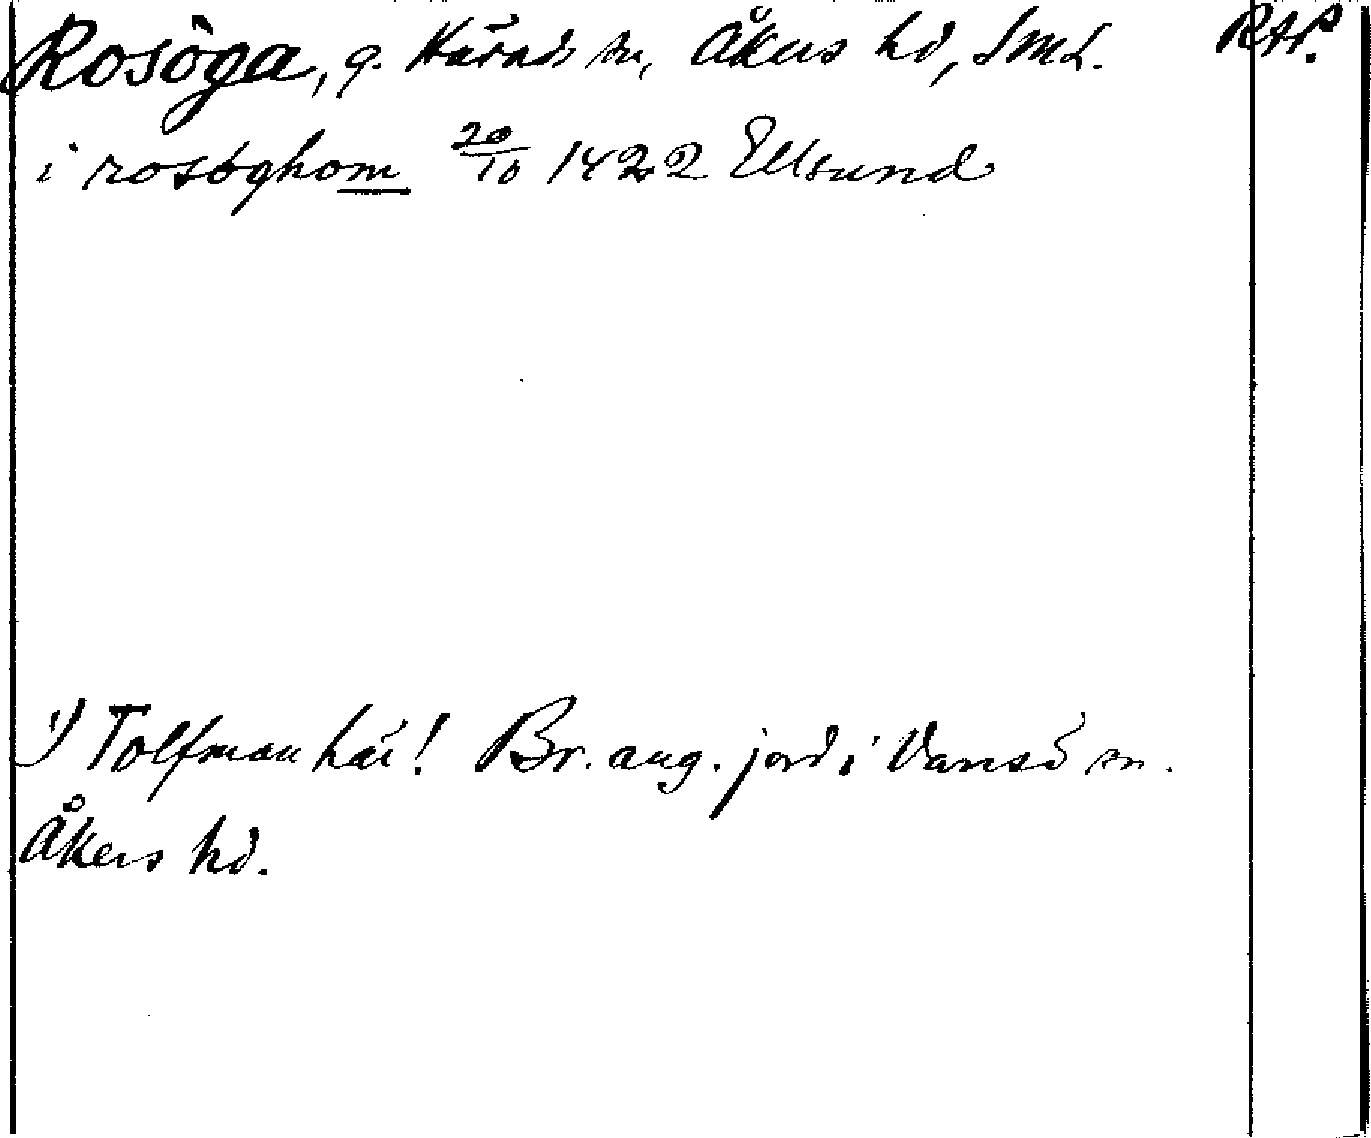 Rosöga, g. Härads sn, Åkers hd, Sml. RAP.
i rosöghom 20/10 1422 Ellsund
1) Tolfman här! Br. ang. jord i Vansö sn.
Åkers hd.